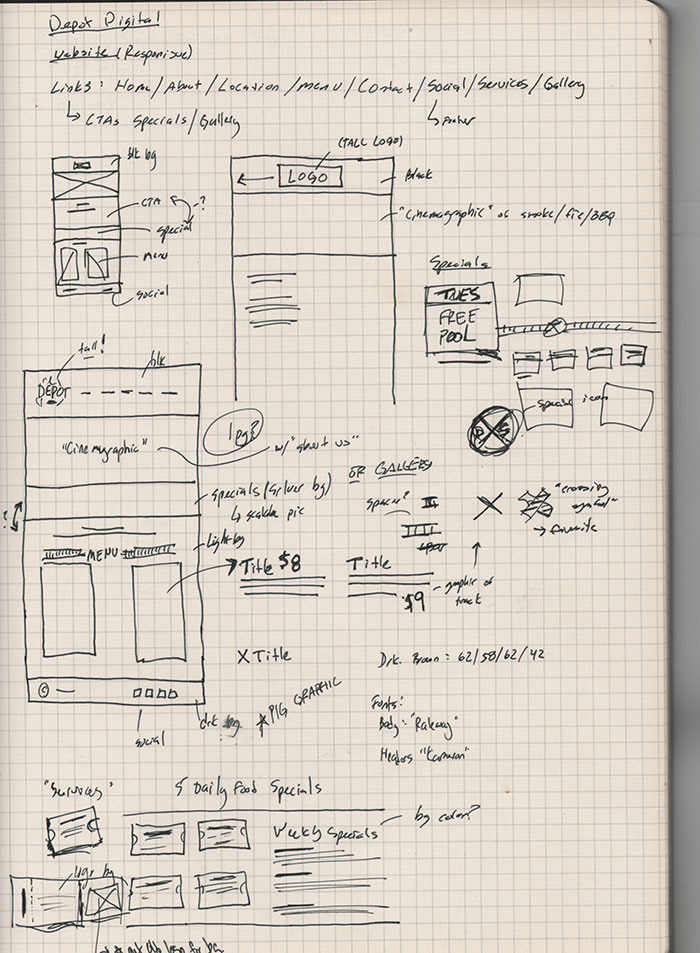 Depot Digital
Website (Responsive)
Links: Home/About/Location/Menu/Contact/Social/Services/Gallery
CTAs Specials/Gallery
Footer
blk bg
CTA
?
special
menu
social
(TALL LOGO)
LOGO
Black
"Cinemagraphic" of smoke/fire/BBQ
Specials
TUES
FREE
POOL
tall!
blk
DEPOT
"Cinemagraphic"
1 pg?
w/ "about us"
special icon
specials (silver bg)
OR GALLERY
spacer?
"crossing
symbol"
favorite
?
light bg
MENU
Title $8
Title
$9
graphic of
track
X Title
Drk. Brown: 62/58/62/42
© —
social
drk bg
PIG GRAPHIC
Fonts:
Body: "Raleway"
Headers "Kameron"
"Services"
5 Daily Food Specials
Weekly Specials
bg color?